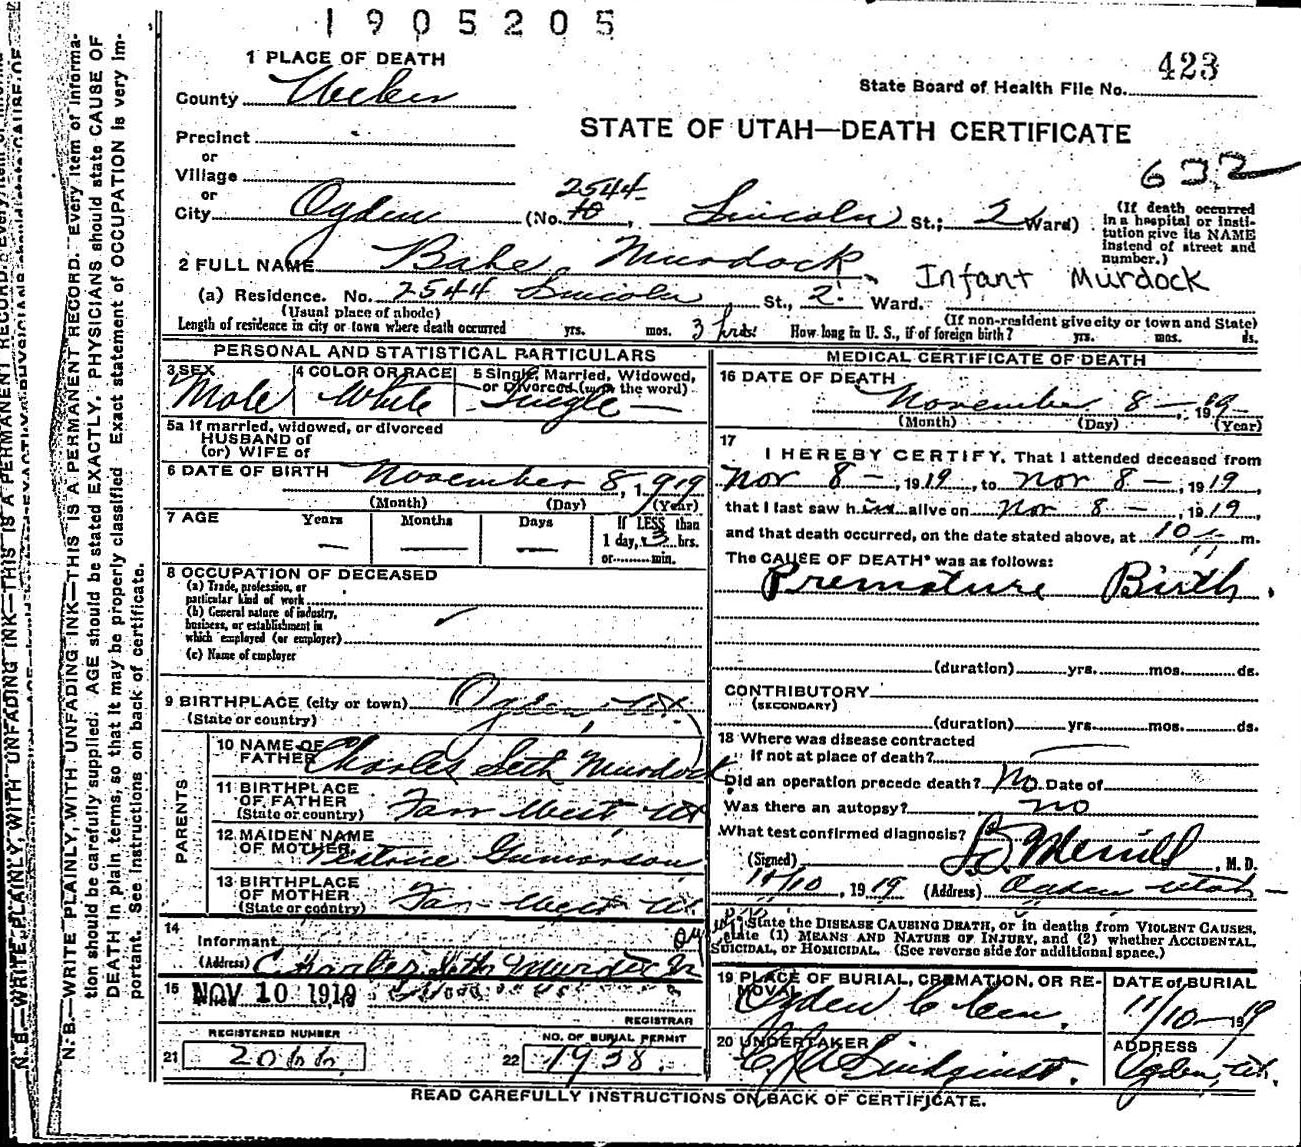 1905205
1 PLACE OF DEATH
423
State Board of Health File No.
County Weber
STATE OF UTAH—DEATH CERTIFICATE
Precinct
or
Village
632
or
2544
City Ogden (No. Lincoln St.; 2 Ward)
(If death occurred
in a hospital or insti-
tution give its NAME
instead of street and
number.)
2 FULL NAME Babe Murdock
Infant Murdock
(a) Residence. No. 2544 Lincoln St., 2 Ward.
(Usual place of abode)
(If non-resident give city or town and State)
Length of residence in city or town where death occurred yrs. mos. 3 hrs. How long in U. S., if of foreign birth? yrs. mos. ds.
PERSONAL AND STATISTICAL PARTICULARS
3 SEX
Male
4 COLOR OR RACE
White
5 Single, Married, Widowed,
or Divorced (write the word)
Single —
5a If married, widowed, or divorced
HUSBAND of
(or) WIFE of
6 DATE OF BIRTH November 8, 1919
(Month) (Day) (Year)
7 AGE Years Months Days If LESS than
— — — 1 day, 3 hrs.
or min.
8 OCCUPATION OF DECEASED
(a) Trade, profession, or
particular kind of work
(b) General nature of industry,
business, or establishment in
which employed (or employer)
(c) Name of employer
9 BIRTHPLACE (city or town) Ogden, Ut.
(State or country)
PARENTS
10 NAME OF
FATHER Charles Seth Murdock
11 BIRTHPLACE
OF FATHER
(State or country) Farr West Ut
12 MAIDEN NAME
OF MOTHER Beatrice
13 BIRTHPLACE
OF MOTHER
(State or country) Farr West Ut.
14
Informant
(Address) Charles Seth Murdock
15 NOV 10 1919
REGISTRAR
REGISTERED NUMBER
21
NO. OF BURIAL PERMIT
22 1938.
MEDICAL CERTIFICATE OF DEATH
16 DATE OF DEATH
November 8 — 1919
(Month) (Day) (Year)
17
I HEREBY CERTIFY, That I attended deceased from
Nov 8 —, 1919, to Nov 8 —, 1919,
that I last saw h im alive on Nov 8 —, 1919,
and that death occurred, on the date stated above, at 10 m.
The CAUSE OF DEATH* was as follows:
Premature Birth.
(duration) yrs. mos. ds.
CONTRIBUTORY
(SECONDARY)
(duration) yrs. mos. ds.
18 Where was disease contracted
if not at place of death?
Did an operation precede death? No Date of
Was there an autopsy? no
What test confirmed diagnosis?
(Signed) Merrill, M. D.
11/10, 1919 (Address) Ogden Utah —
State the DISEASE CAUSING DEATH, or in deaths from VIOLENT CAUSES,
state (1) MEANS AND NATURE OF INJURY, and (2) whether ACCIDENTAL,
SUICIDAL, or HOMICIDAL. (See reverse side for additional space.)
19 PLACE OF BURIAL, CREMATION, OR RE-
MOVAL
Ogden C Cem.
DATE of BURIAL
11/10—1919
20 UNDERTAKER
Lindquist.
ADDRESS
Ogden, Ut.
READ CAREFULLY INSTRUCTIONS ON BACK OF CERTIFICATE.
N. B.—WRITE PLAINLY, WITH UNFADING INK—THIS IS A PERMANENT RECORD. Every item of informa-
tion should be carefully supplied. AGE should be stated EXACTLY. PHYSICIANS should state CAUSE OF
DEATH in plain terms, so that it may be properly classified. Exact statement of OCCUPATION is very im-
portant. See instructions on back of certificate.